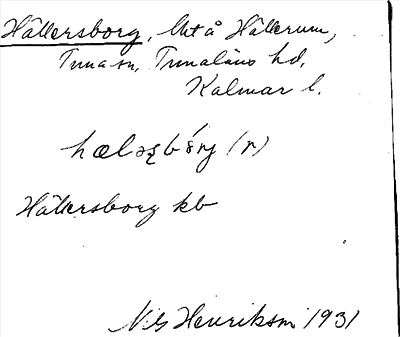 Hällersborg, lht å Hällerum,
Tuna sn, Tunaläns hd,
Kalmar l.
hæləʂbórj (r)
Hällersborg kb
Nils Henrikson 1931